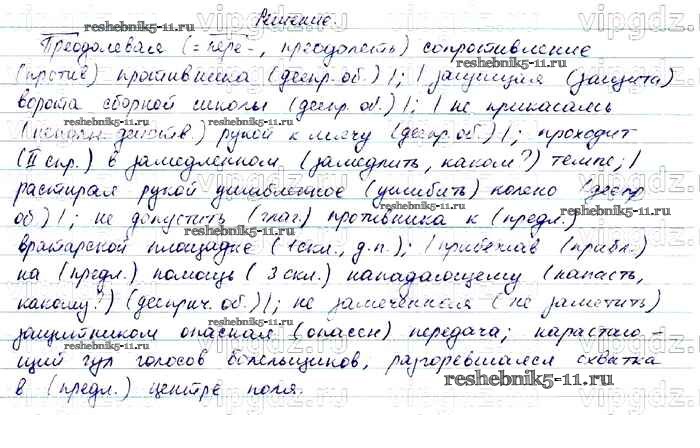 Решение.
Преодолевая (= пере-, преодолеть) сопротивление
(против) противника (деепр. об.) |; | защищая (защита)
ворота сборной школы (деепр. об.) |; | не прикасаясь
(неполн. действ.) рукой к мячу (деепр. об.) |; проходит
(II спр.) в замедленном (замедлить, каком?) темпе; |
растирая рукой ушибленное (ушибить) колено (деепр.
об.) |; не допустить (глаг.) противника к (предл.)
вратарской площадке (1 скл., д.п.); | прибежав (прибл.)
на (предл.) помощь (3 скл.) нападающему (напасть,
какому?) (дееприч. об.) |; не замеченная (не заметить)
защитником опасная (опасен) передача; нарастаю-
щий гул голосов болельщиков, разгоревшаяся схватка
в (предл.) центре поля.
reshebnik5-11.ru
reshebnik5-11.ru
reshebnik5-11.ru
reshebnik5-11.ru
reshebnik5-11.ru
reshebnik5-11.ru
vipgdz.ru